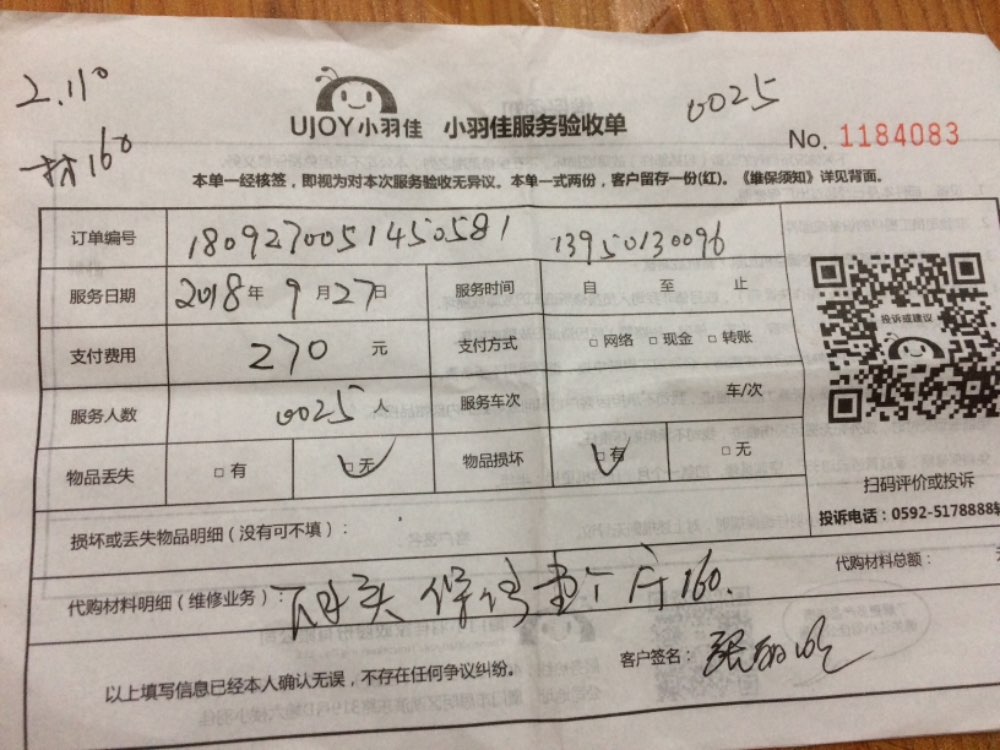 2.110
材160
0025
UJOY小羽佳 小羽佳服务验收单
No. 1184083
本单一经核签，即视为对本次服务验收无异议。本单一式两份，客户留存一份(红)。《维保须知》详见背面。
订单编号 1809270051450581 13950130096
服务日期 2018年9月27日 服务时间 自 至 止
投诉或建议
支付费用 270 元 支付方式 □网络 □现金 □转账
服务人数 0025人 服务车次 车/次
物品丢失 □有 □无 物品损坏 □有 □无
扫码评价或投诉
投诉电话：0592-5178888
损坏或丢失物品明细（没有可不填）：
代购材料总额：
代购材料明细（维修业务）： 160.
客户签名：
以上填写信息已经本人确认无误，不存在任何争议纠纷。